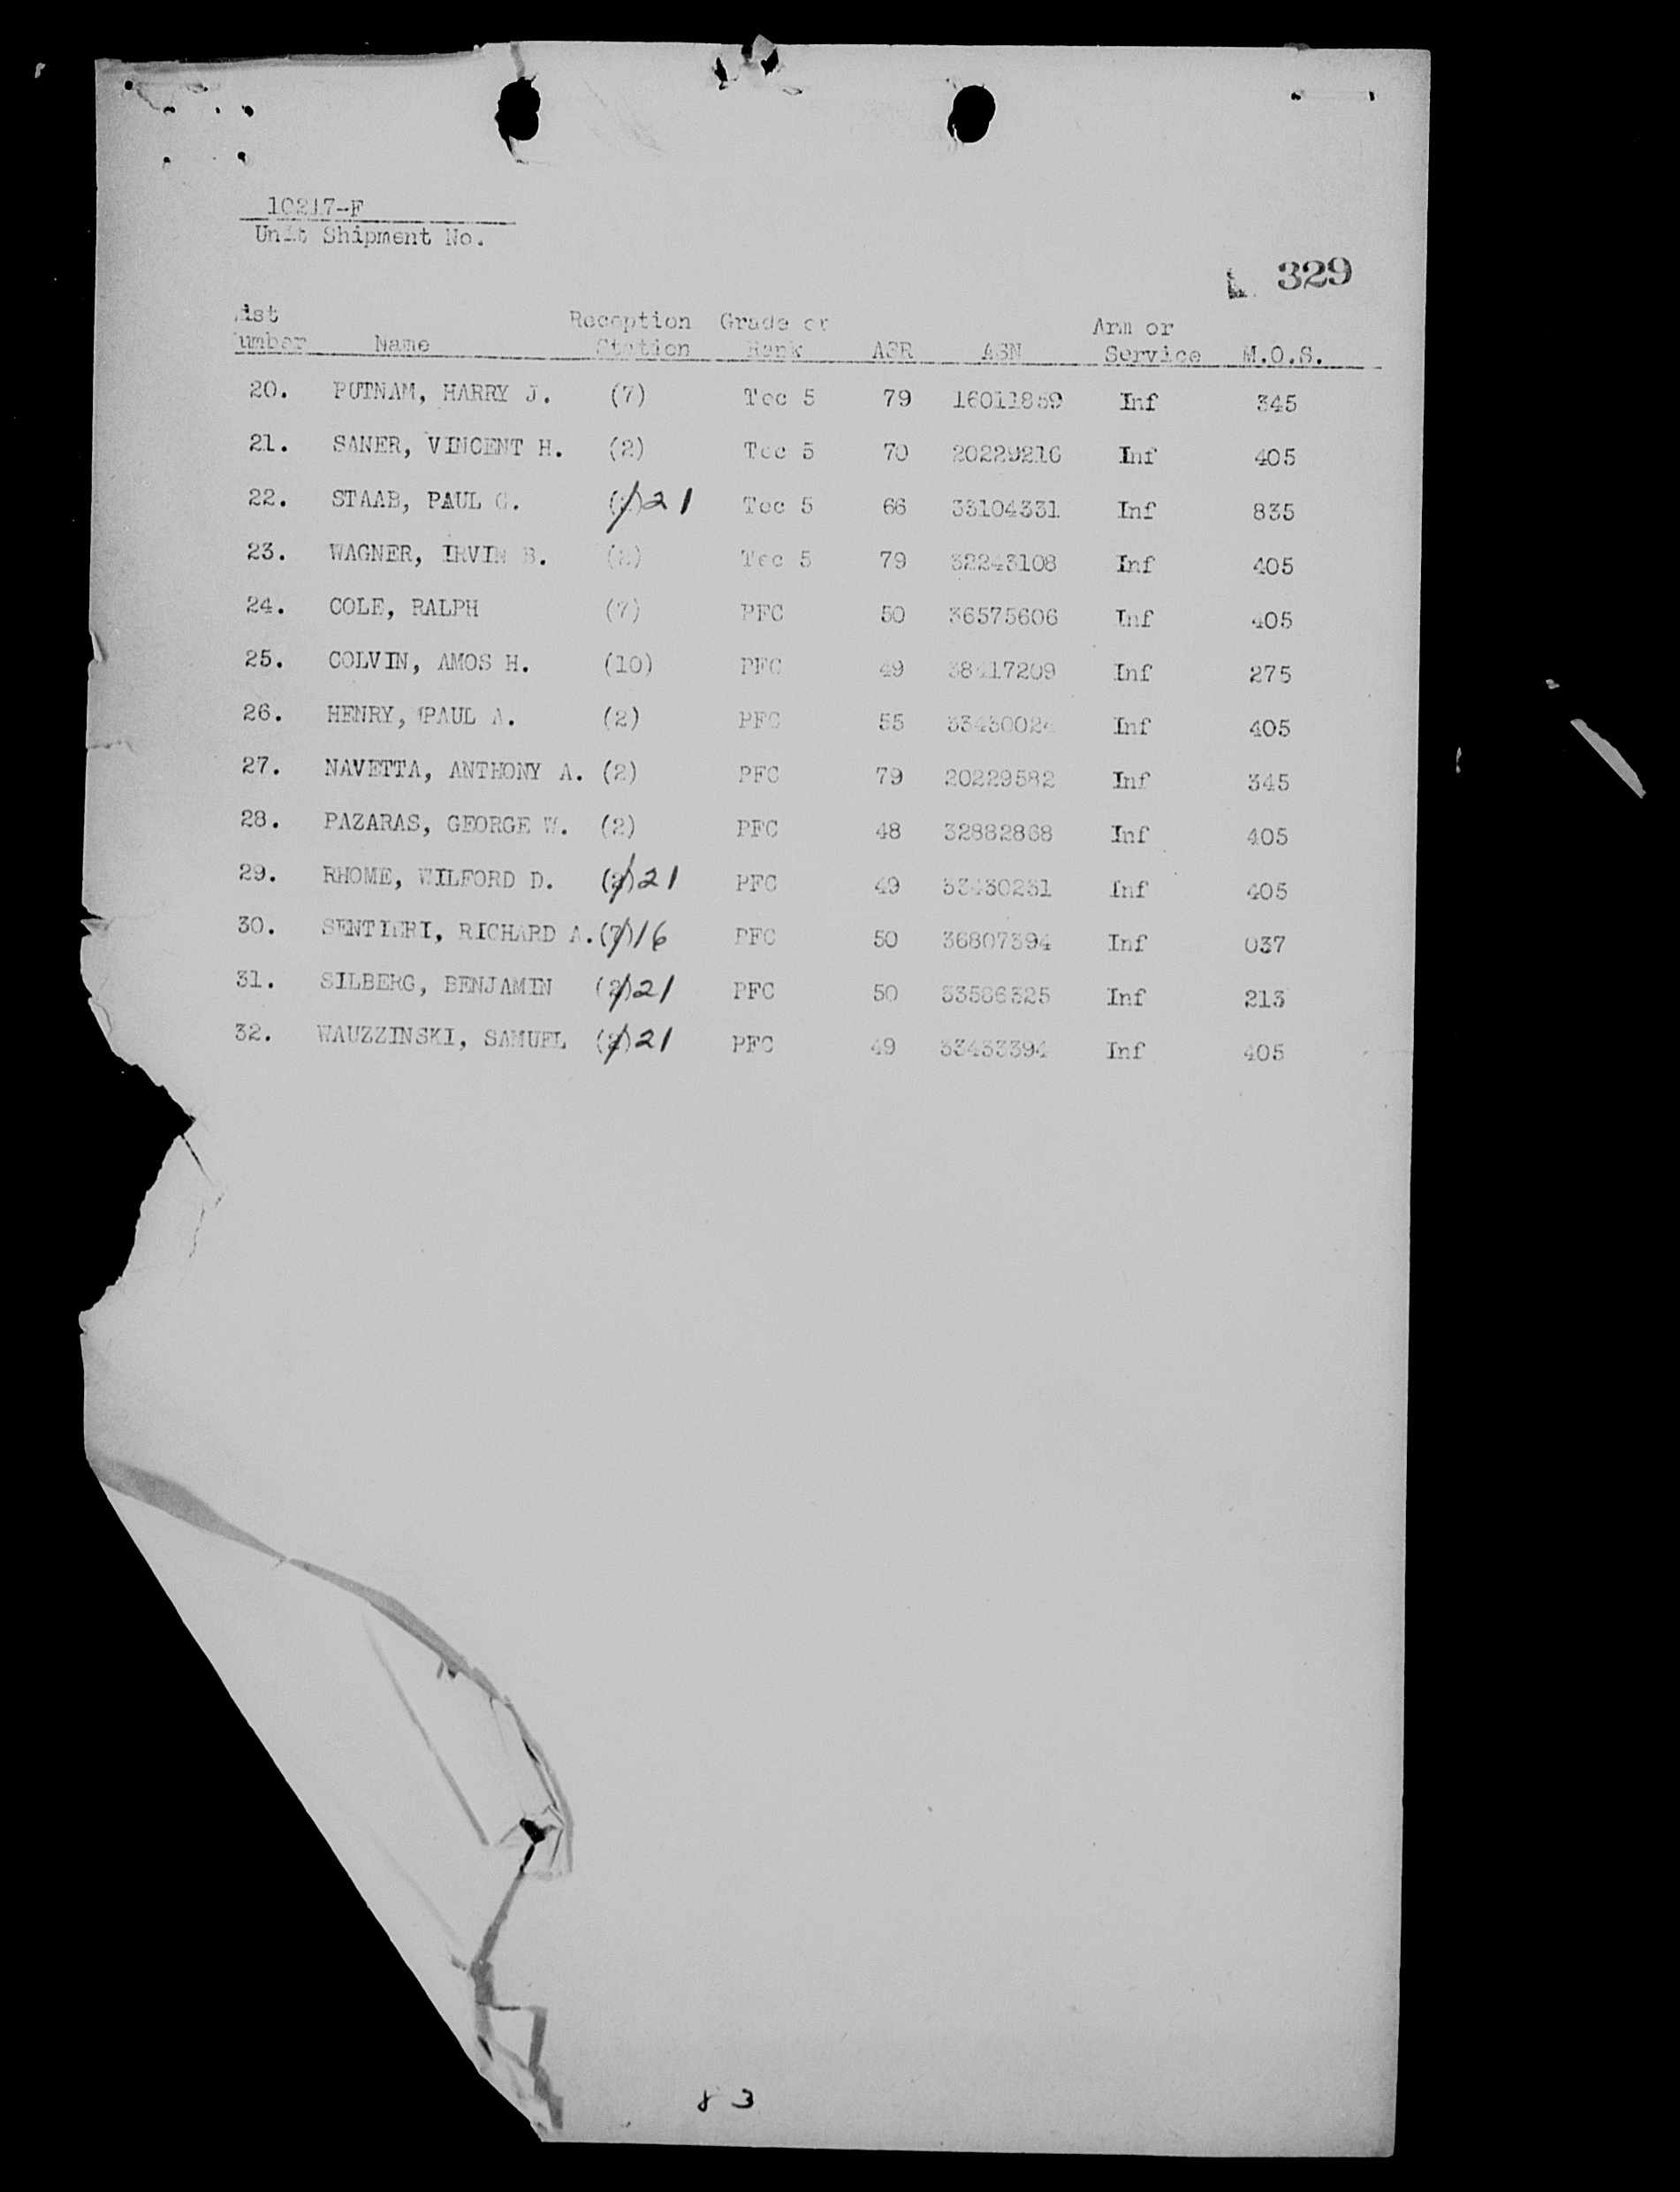 10217-F
Unit Shipment No.
329
ist Reception Grade or Arm or
umber Name Station Rank ASR ASN Service M.O.S.
20. PUTNAM, HARRY J. (7) Tec 5 79 16011859 Inf 345
21. SANER, VINCENT H. (2) Tec 5 70 20229216 Inf 405
22. STAAB, PAUL G. 21 Tec 5 66 33104331 Inf 835
23. WAGNER, IRVIN B. (2) Tec 5 79 32243108 Inf 405
24. COLE, RALPH (7) PFC 50 36575606 Inf 405
25. COLVIN, AMOS H. (10) PFC 49 38417209 Inf 275
26. HENRY, PAUL A. (2) PFC 55 33430024 Inf 405
27. NAVETTA, ANTHONY A. (2) PFC 79 20229582 Inf 345
28. PAZARAS, GEORGE W. (2) PFC 48 32882868 Inf 405
29. RHOME, WILFORD D. (2) 21 PFC 49 33430231 Inf 405
30. SENTIERI, RICHARD A. (7) 16 PFC 50 36807394 Inf 037
31. SILBERG, BENJAMIN (2) 21 PFC 50 33586325 Inf 213
32. WAUZZINSKI, SAMUEL (2) 21 PFC 49 33433394 Inf 405
83